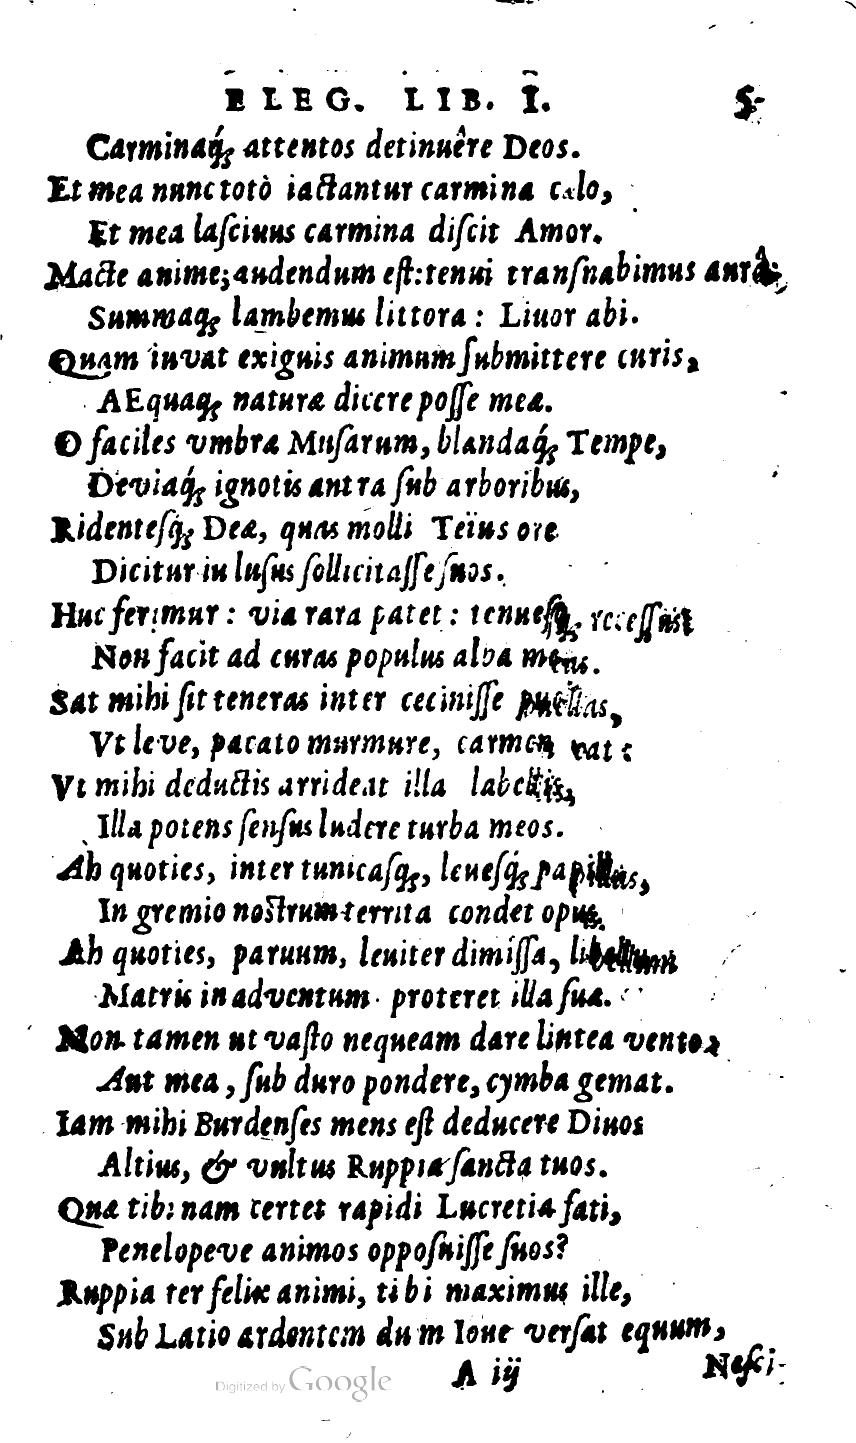 ELEG. LIB. I. 5
Carminaq́; attentos detinuêre Deos.
Et mea nunc totò iactantur carmina cælo,
Et mea laſciuus carmina diſcit Amor.
Macte anime; audendum eſt: tenui tranſnabimus aurâ;
Summaq; lambemus littora: Liuor abi.
Quam iuvat exiguis animum ſubmittere curis,
AEquaq; naturæ dicere poſſe meæ.
O faciles vmbræ Muſarum, blandaq́; Tempe,
Deviaq́; ignotis antra ſub arboribus,
Ridenteſq́; Deæ, quas molli Teïus ore
Dicitur in luſus ſollicitaſſe ſuos.
Huc ferimur: via rara patet: tenueſq; receſſus
Non facit ad curas populus alba meas.
Sat mihi ſit teneras inter ceciniſſe puellas,
Vt leve, pacato murmure, carmen eat:
Vt mihi deductis arrideat illa labellis,
Illa potens ſenſus ludere turba meos.
Ah quoties, inter tunicaſq;, leueſq́; papillas,
In gremio noſtrum territa condet opus.
Ah quoties, paruum, leuiter dimiſſa, libellum
Matris in adventum proteret illa ſuæ.
Non tamen ut vaſto nequeam dare lintea vento,
Aut mea, ſub duro pondere, cymba gemat.
Iam mihi Burdenſes mens eſt deducere Diuos
Altius, & vultus Ruppia ſancta tuos.
Quæ tibi nam certet rapidi Lucretia fati,
Penelopeve animos oppoſuiſſe ſuos?
Ruppia ter felix animi, tibi maximus ille,
Sub Latio ardentem dum Ioue verſat equum,
A iij Neſci-
Digitized by Google